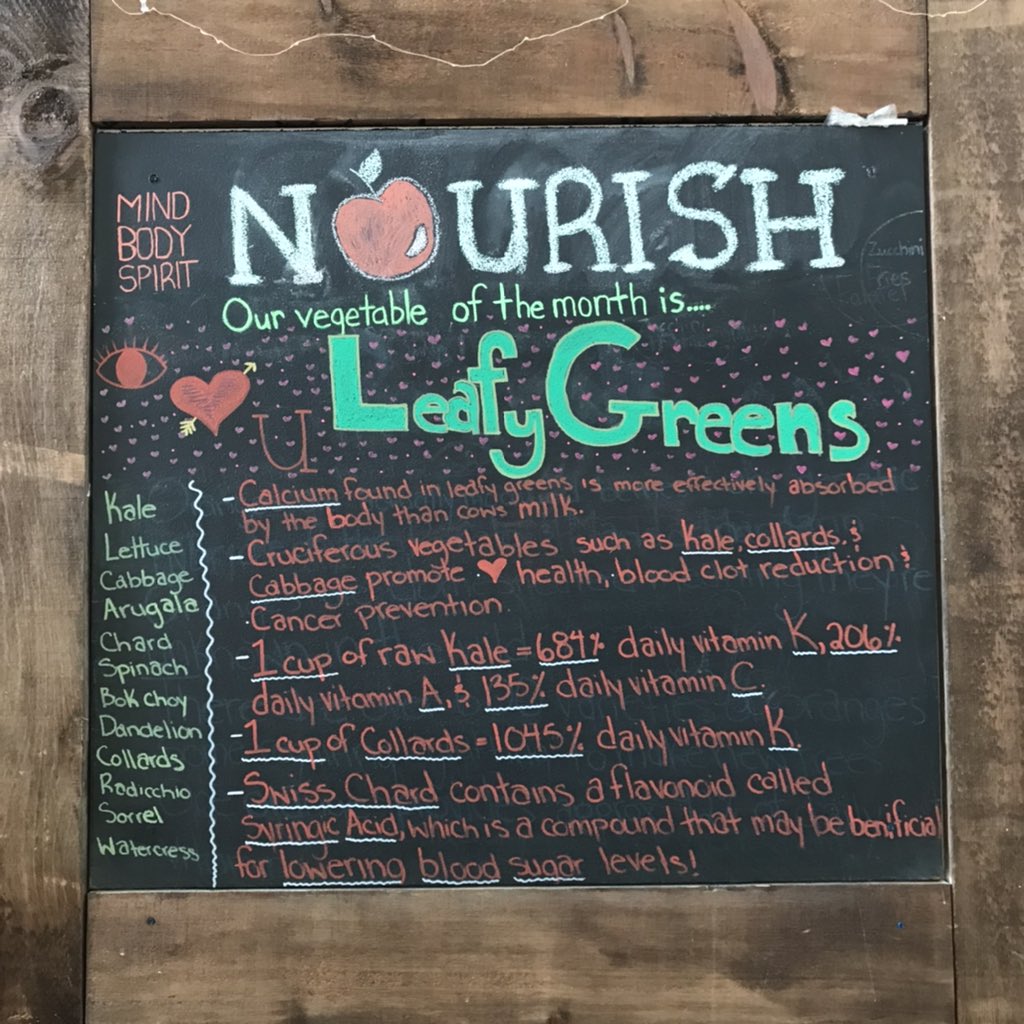 MIND
BODY
SPIRIT
NOURISH
Our vegetable of the month is....
Leafy Greens
U
Kale
Lettuce
Cabbage
Arugala
Chard
Spinach
Bok choy
Dandelion
Collards
Radicchio
Sorrel
Watercress
- Calcium found in leafy greens is more effectively absorbed
by the body than cows milk.
- Cruciferous vegetables such as Kale, collards, &
Cabbage promote ♥ health, blood clot reduction &
Cancer prevention.
- 1 cup of raw Kale = 684% daily vitamin K, 206%
daily vitamin A, & 135% daily vitamin C.
- 1 cup of Collards = 1045% daily vitamin K.
- Swiss Chard contains a flavonoid called
Syringic Acid, which is a compound that may be benificial
for lowering blood sugar levels!
Zucchini